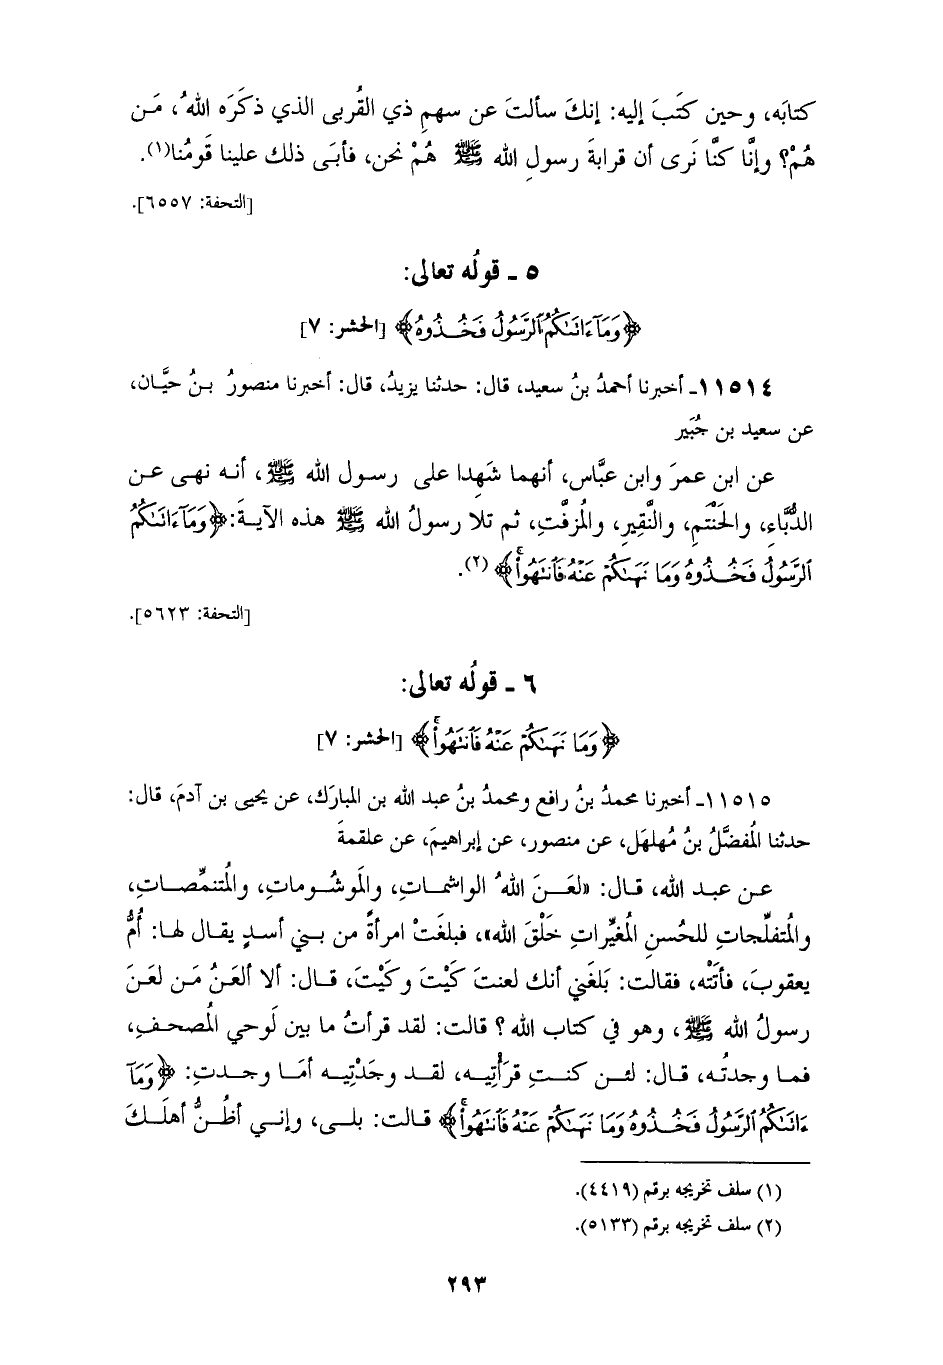 كتابَه، وحين كتَبَ إليه: إنكَ سألتَ عن سهمِ ذي القُربى الذي ذكَرَه اللهُ، مَن
هُمْ؟ وإنَّا كنَّا نَرى أن قرابةَ رسولِ الله ﷺ هُمْ نحن، فأبَى ذلك علينا قَومُنا(١).
[التحفة: ٦٥٥٧].
٥ ـ قولُه تعالى:
﴿وَمَآ ءَاتَىٰكُمُ ٱلرَّسُولُ فَخُـذُوهُ﴾ [الحشر: ٧]
١١٥١٤ـ أخبرنا أحمدُ بنُ سعيد، قال: حدثنا يزيدُ، قال: أخبرنا منصورُ بـنُ حيَّان،
عن سعيد بن جُبَير
عن ابن عمرَ وابن عبَّاس، أنهما شَهِدا على رسـول الله ﷺ، أنـه نهـى عـن
الدُّبَّاءِ، والحَنْتَمِ، والنَّقِيرِ، والمُزفَّتِ، ثم تلا رسولُ الله ﷺ هذه الآيـةَ: ﴿وَمَآ ءَاتَىٰكُمُ
ٱلرَّسُولُ فَخُـذُوهُ وَمَا نَهَىٰكُمْ عَنْهُ فَٱنتَهُواْ﴾(٢).
[التحفة: ٥٦٢٣].
٦ ـ قولُه تعالى:
﴿وَمَا نَهَىٰكُمْ عَنْهُ فَٱنتَهُواْ﴾ [الحشر: ٧]
١١٥١٥ـ أخبرنا محمدُ بنُ رافع ومحمدُ بنُ عبد الله بن المبارَك، عن يحيى بن آدمَ، قال:
حدثنا المُفضَّلُ بنُ مُهلهَل، عن منصور، عن إبراهيمَ، عن علقمةَ
عـن عبـد الله، قـال: «لعَـنَ اللهُ الواشمـاتِ، والمَوشُـوماتِ، والمُتنمِّصـاتِ،
والمُتفلِّجاتِ للحُسنِ المُغيِّراتِ خَلْقَ الله»، فبلغَتْ امرأةً من بـني أسـدٍ يقـال لهـا: أمُّ
يعقوبَ، فأتَتْه، فقالت: بَلغَني أنك لعنتَ كَيْتَ وكَيْتَ، قـال: ألا ألعَنُ مَن لعَنَ
رسولُ الله ﷺ، وهو في كتاب الله؟ قالت: لقد قرأتُ ما بين لَوحي المُصحـفِ،
فمـا وجدتُـه، قـال: لئـن كنـتِ قرَأْتِيـه، لقـد وجَدْتِيـه أمَـا وجـدتِ: ﴿وَمَآ
ءَاتَىٰكُمُ ٱلرَّسُولُ فَخُـذُوهُ وَمَا نَهَىٰكُمْ عَنْهُ فَٱنتَهُواْ﴾ قالت: بلـى، وإنـي أظـنُّ أهلَـكَ
(١) سلف تخريجه برقم (٤٤١٩).
(٢) سلف تخريجه برقم (٥١٣٣).
٢٩٣